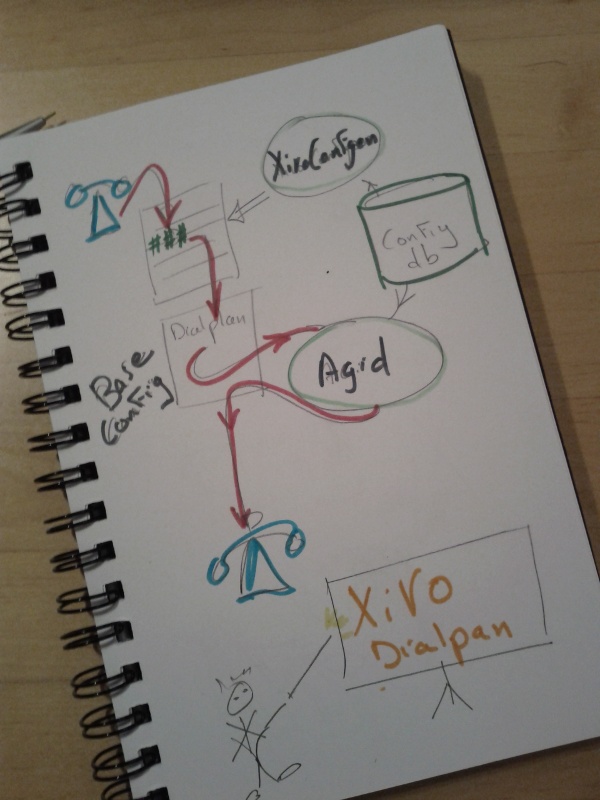 XivoConfgen
###
Config
db
Dialplan
Agid
Base
Config
XiVO
Dialpan